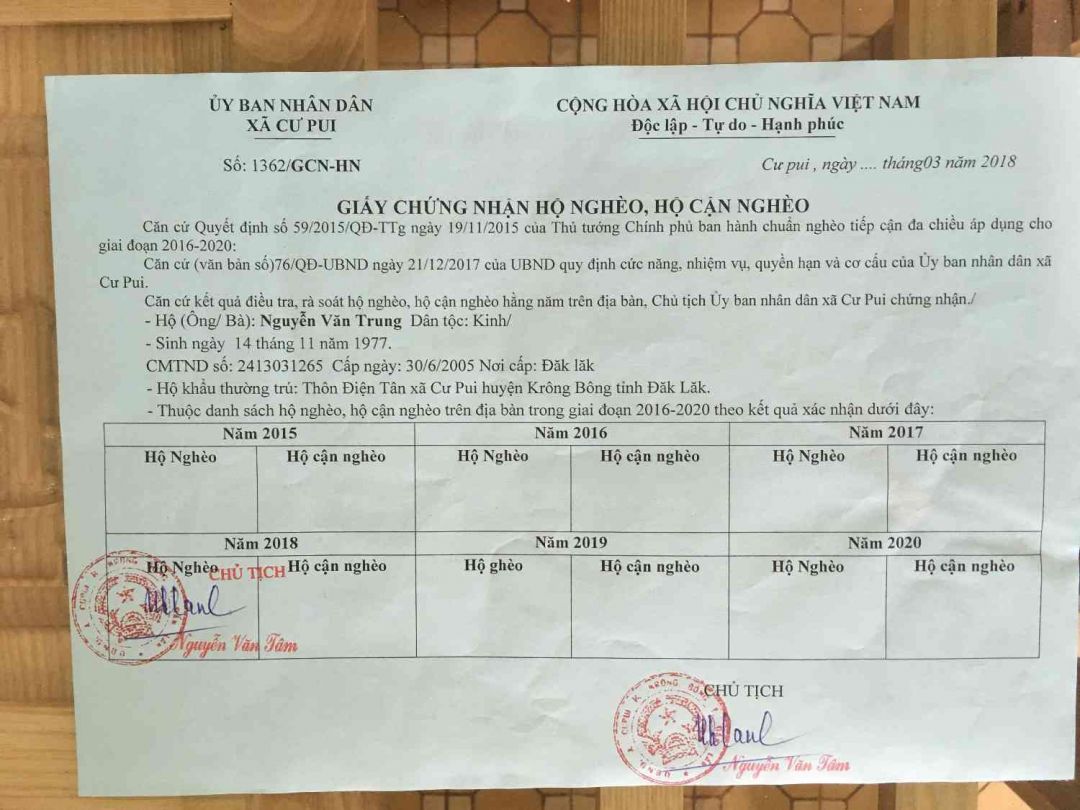 ỦY BAN NHÂN DÂN
XÃ CƯ PUI
CỘNG HÒA XÃ HỘI CHỦ NGHĨA VIỆT NAM
Độc lập - Tự do - Hạnh phúc
Số: 1362/GCN-HN
Cư pui , ngày .... tháng03 năm 2018
GIẤY CHỨNG NHẬN HỘ NGHÈO, HỘ CẬN NGHÈO
Căn cứ Quyết định số 59/2015/QĐ-TTg ngày 19/11/2015 của Thủ tướng Chính phủ ban hành chuẩn nghèo tiếp cận đa chiều áp dụng cho
giai đoạn 2016-2020:
Căn cứ (văn bản số)76/QĐ-UBND ngày 21/12/2017 của UBND quy định cức năng, nhiệm vụ, quyền hạn và cơ cấu của Ủy ban nhân dân xã
Cư Pui.
Căn cứ kết quả điều tra, rà soát hộ nghèo, hộ cận nghèo hằng năm trên địa bàn, Chủ tịch Ủy ban nhân dân xã Cư Pui chứng nhận./
- Hộ (Ông/ Bà): Nguyễn Văn Trung Dân tộc: Kinh/
- Sinh ngày 14 tháng 11 năm 1977.
CMTND số: 2413031265 Cấp ngày: 30/6/2005 Nơi cấp: Đăk lăk
- Hộ khẩu thường trú: Thôn Điện Tân xã Cư Pui huyện Krông Bông tỉnh Đăk Lăk.
- Thuộc danh sách hộ nghèo, hộ cận nghèo trên địa bàn trong giai đoạn 2016-2020 theo kết quả xác nhận dưới đây:
Năm 2015 Năm 2016 Năm 2017
Hộ Nghèo Hộ cận nghèo Hộ Nghèo Hộ cận nghèo Hộ Nghèo Hộ cận nghèo
Năm 2018 Năm 2019 Năm 2020
Hộ Nghèo Hộ cận nghèo Hộ ghèo Hộ cận nghèo Hộ Nghèo Hộ cận nghèo
CHỦ TỊCH
Nguyễn Văn Tâm
CHỦ TỊCH
Nguyễn Văn Tâm